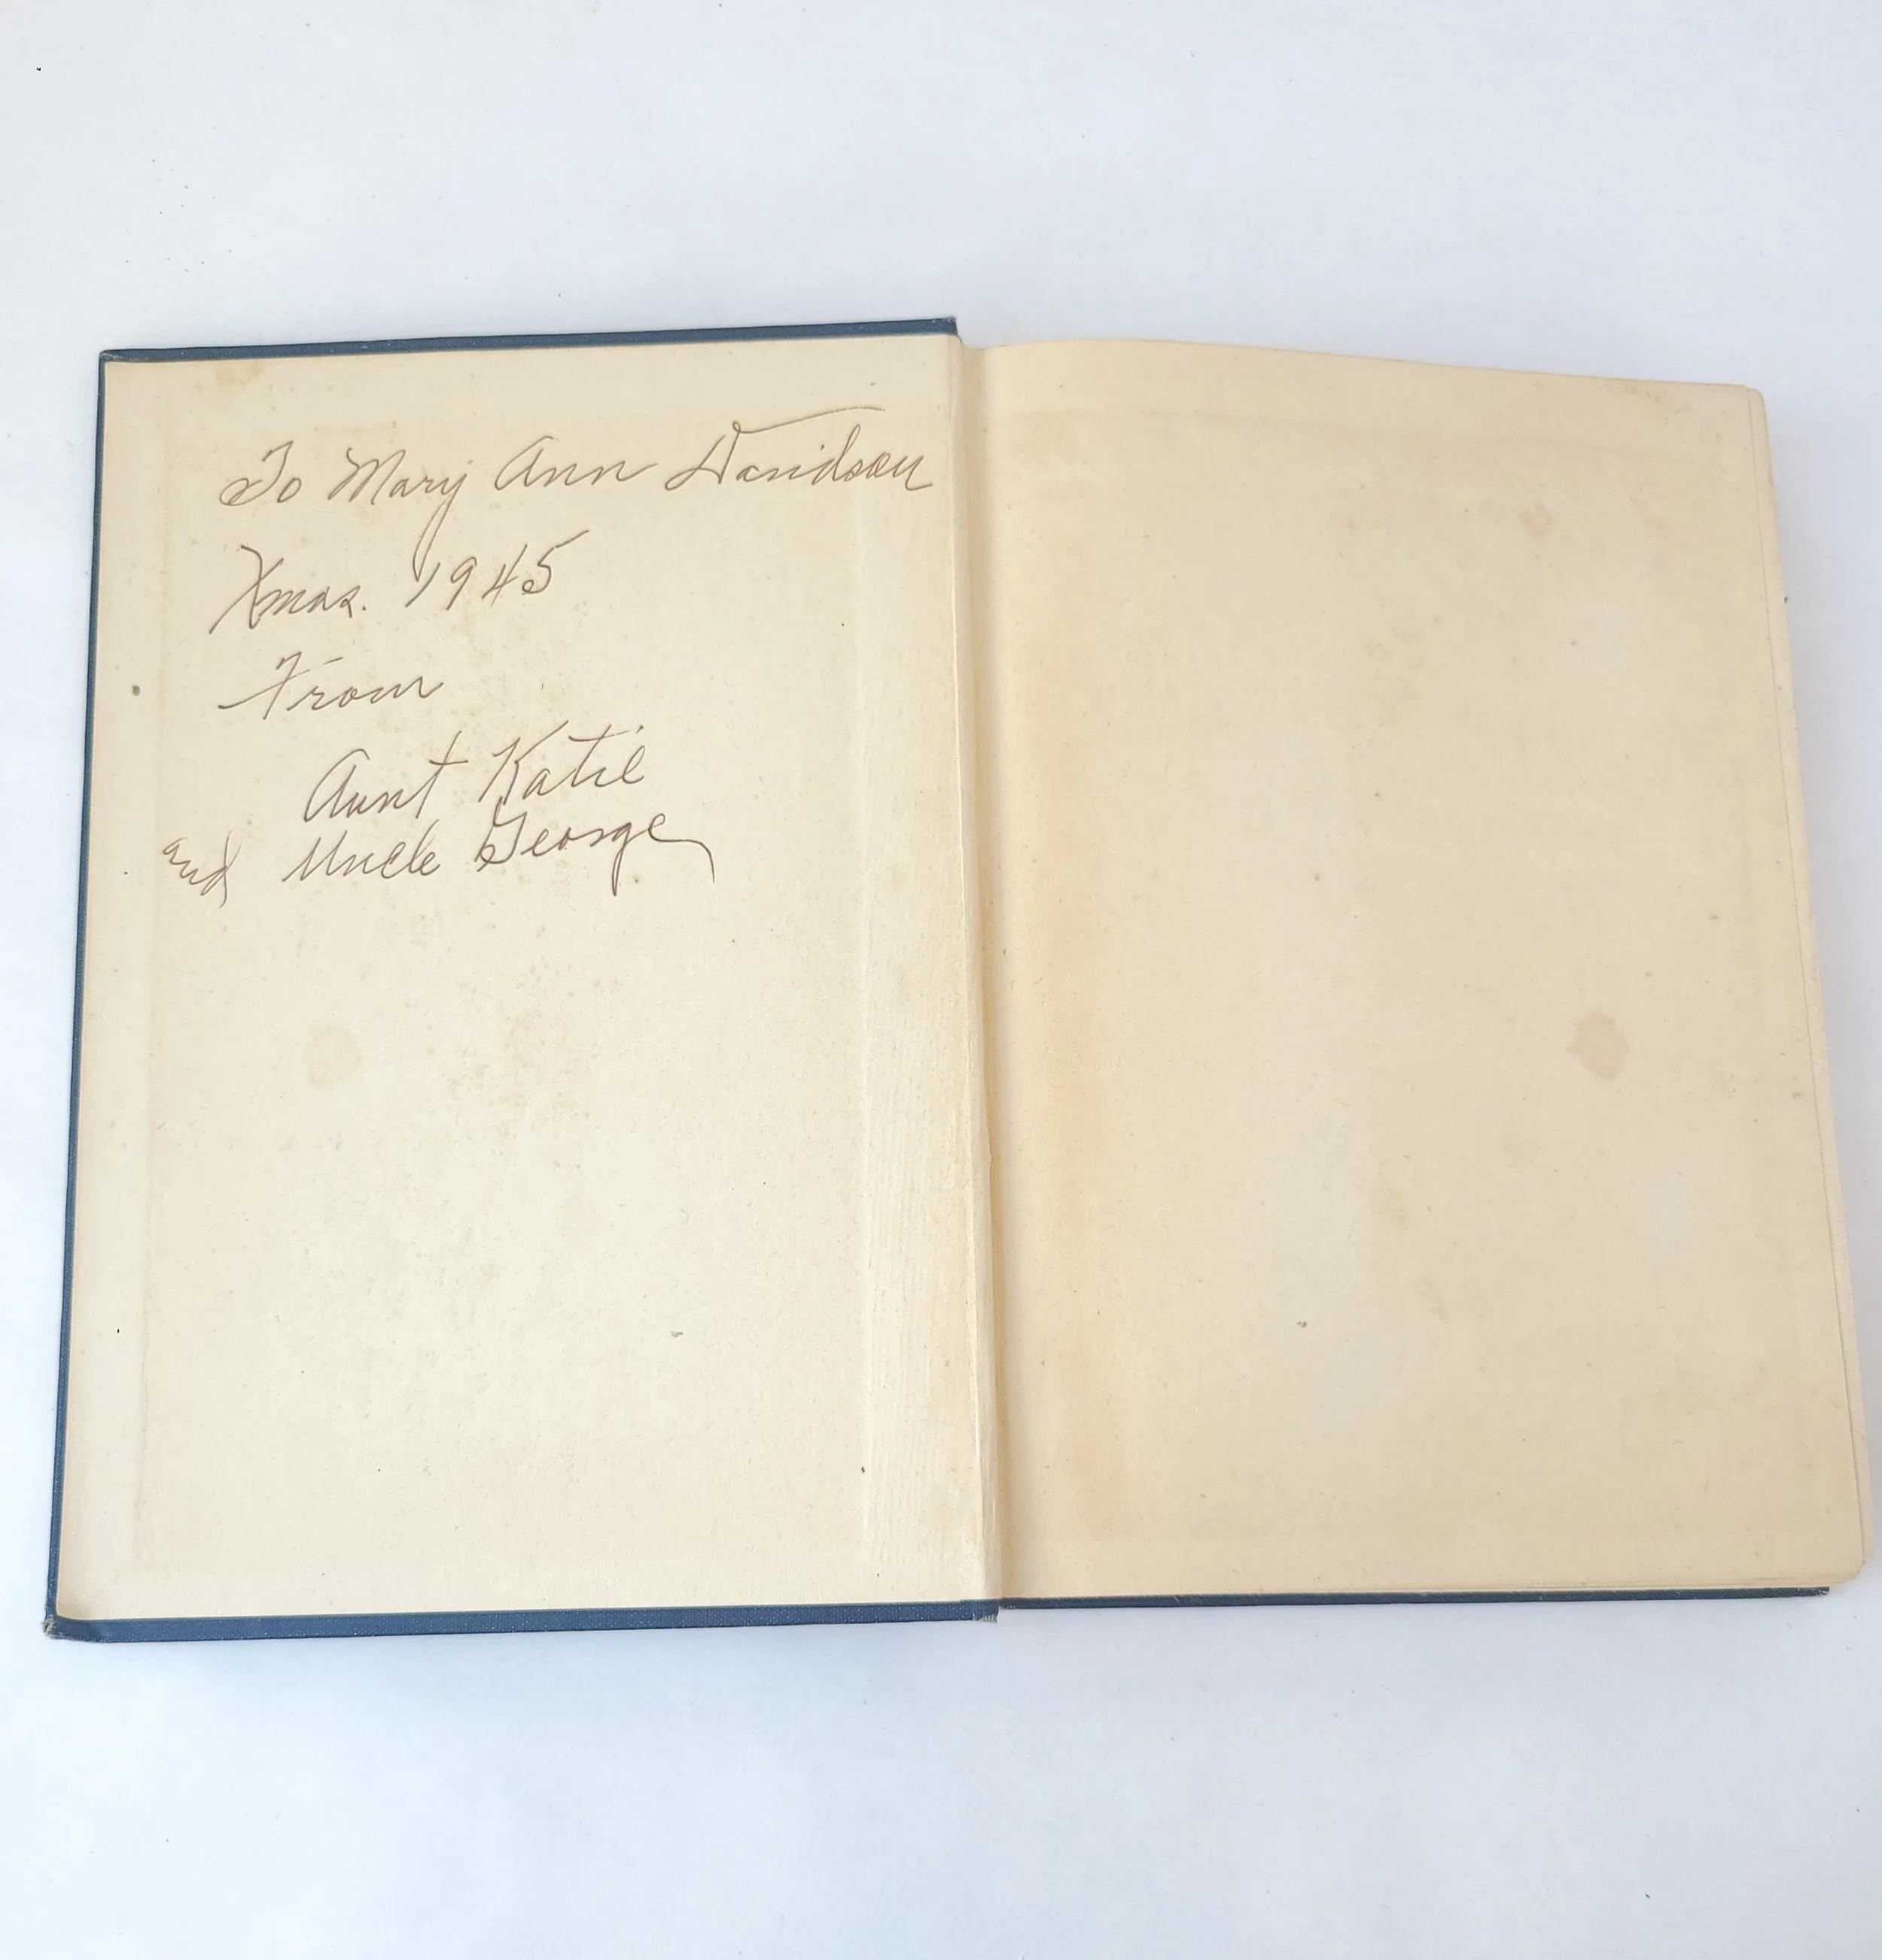 To Mary Ann Davidson
Xmas. 1945
From
Aunt Katie
and Uncle George